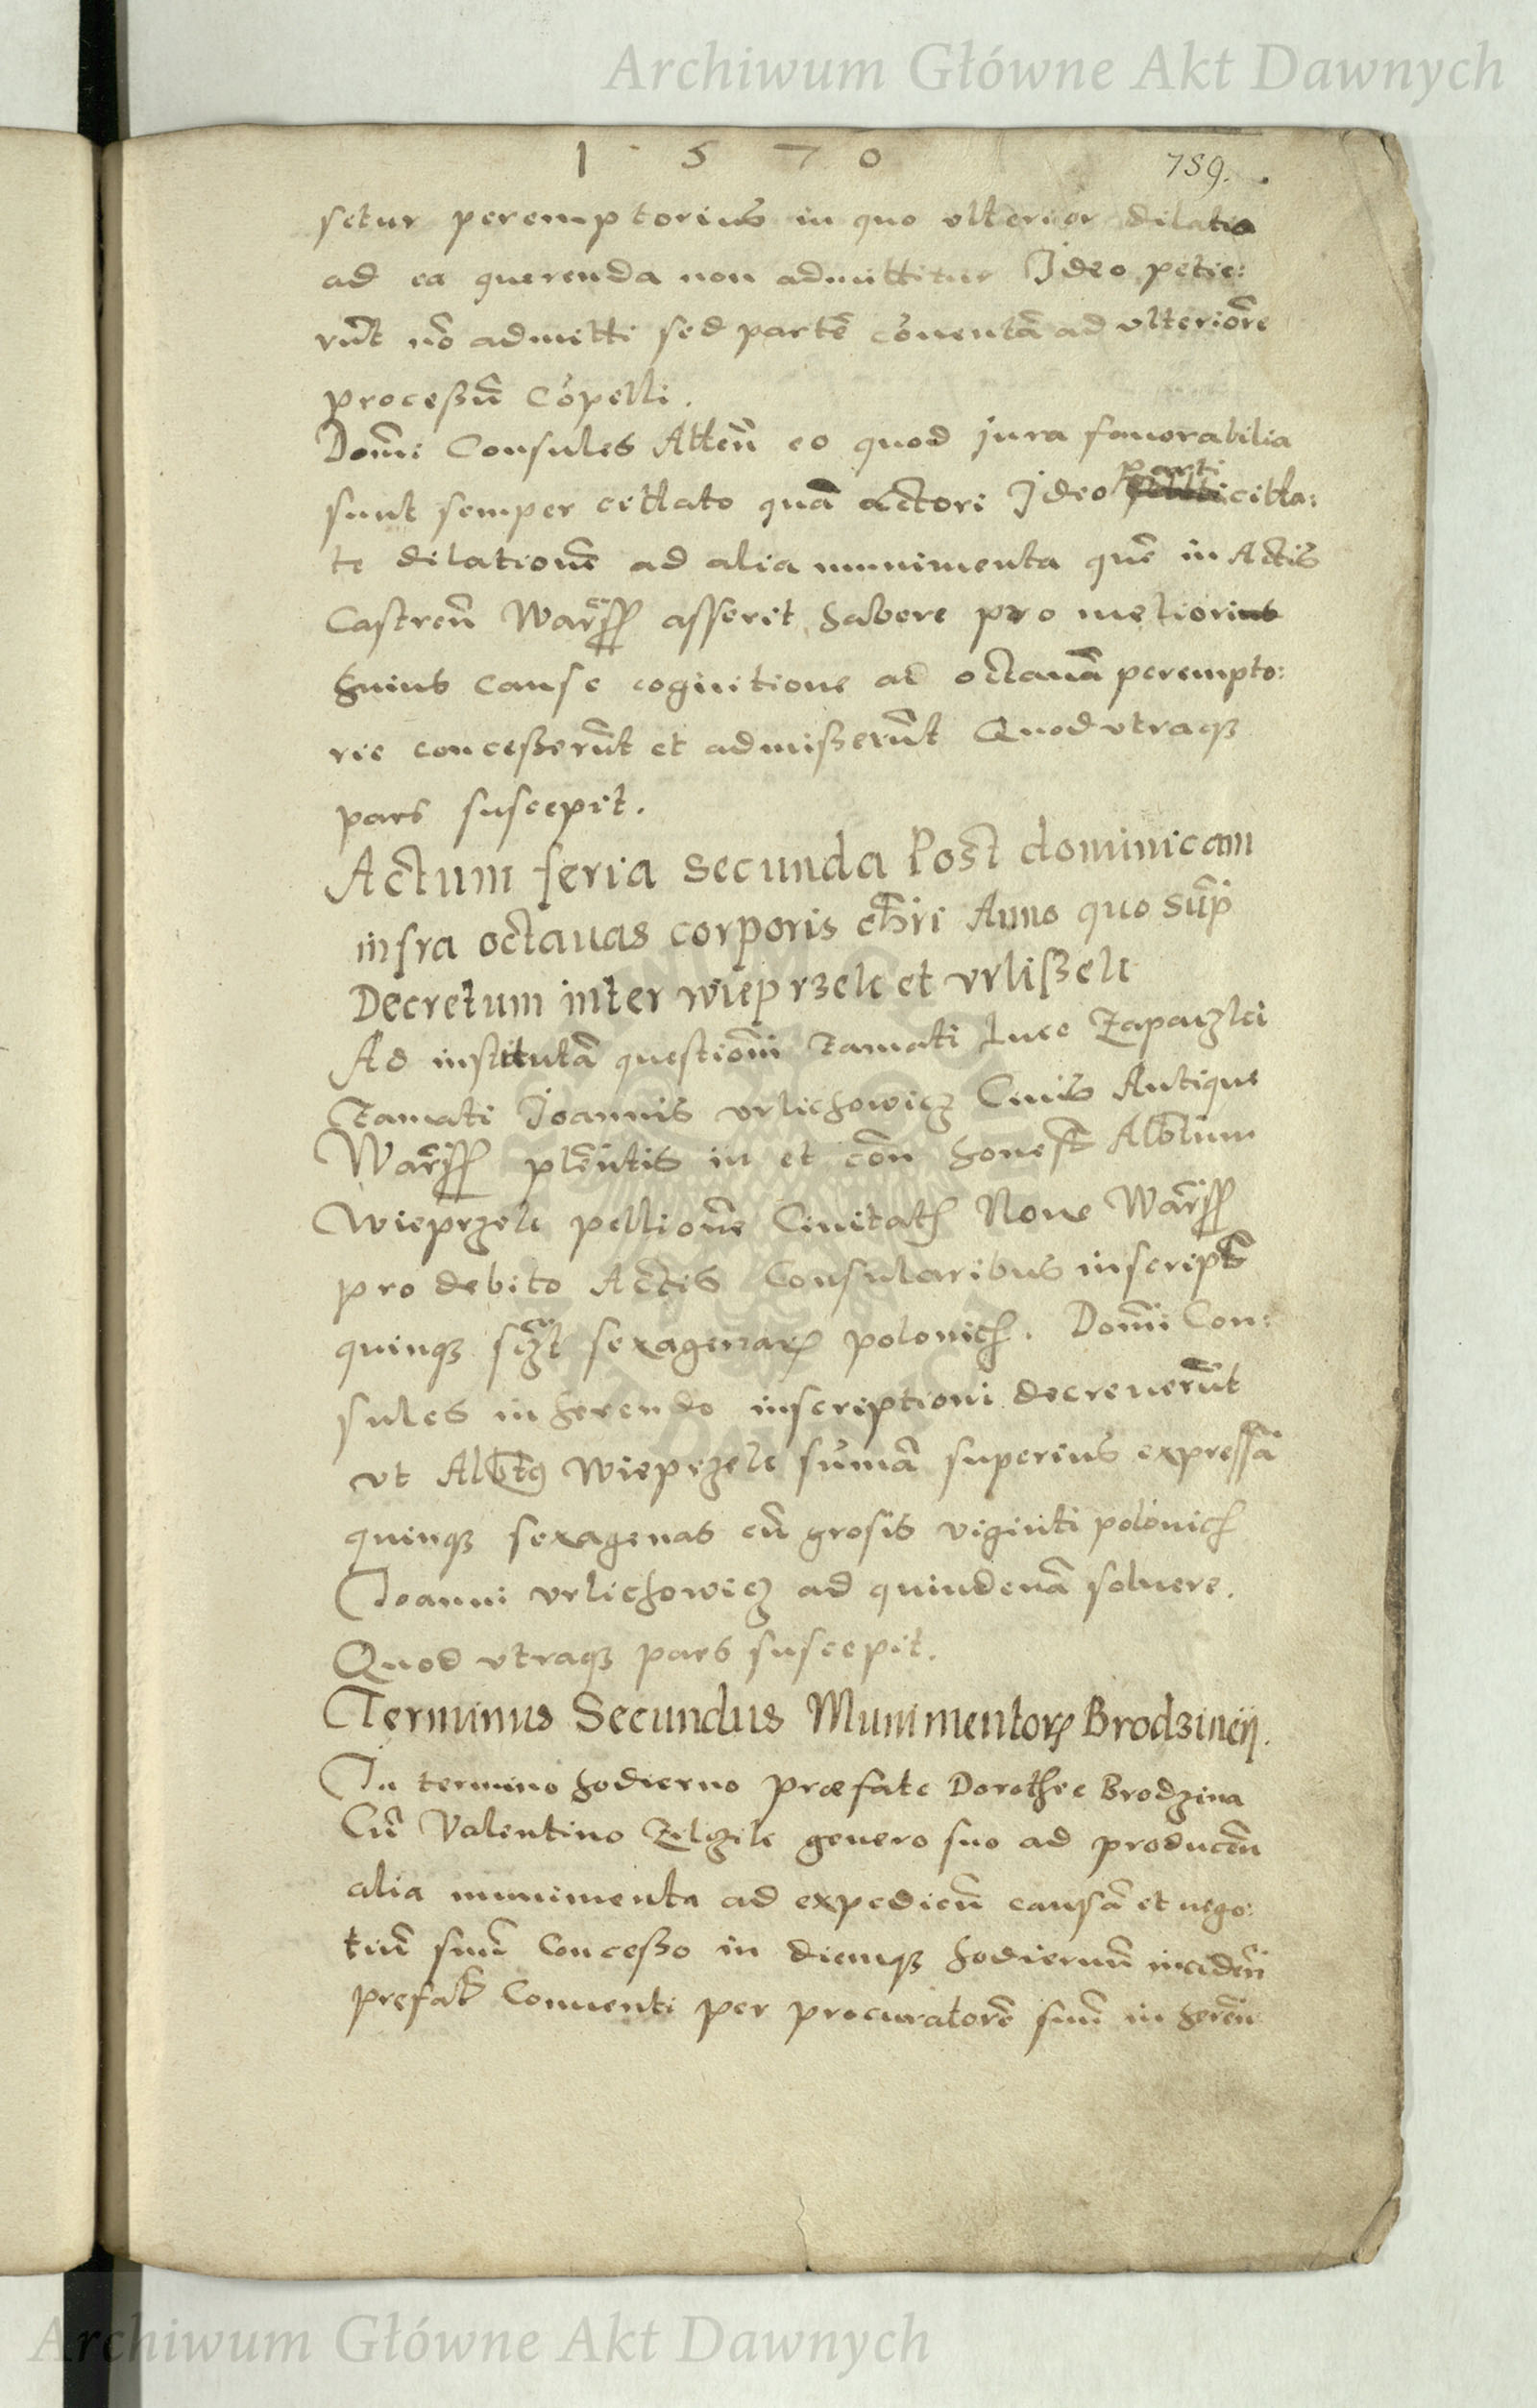 Archiwum Główne Akt Dawnych
1 5 7 0
759.
setur peremptorius in quo ulterior dilatio
ad ea querenda non admittitur Ideo petie:
rũt nõ admitti sed partẽ cõuentã ad vlteriorẽ
processũ cõpelli.
Domĩ Consules Attẽn eo quod jura fauorabilia
sunt semper citato quã actori Ideo parti citta:
te dilationẽ ad alia munimenta quẽ in Actis
Castreñ Warß asserit habere pro meliori
huius cause cognitione ad octauã perempto:
rie concesserũt et admisserũt Quod vtraqꝫ
pars suscepit.
Actum feria secunda Post dominicam
infra octauas corporis chri Anno quo sup̃
Decretum inter wieprzek et vrlißek
Ad institutã questionẽ famati Luce Zapaczki
famati Joannis vrlichowicz Ciuis Antique
Warß plẽntis in et cõn honest Albtum
Wieprzek pellionẽ Ciuitatꝭ Noue Warß
pro debito Actis Consularibus inscript
quinqꝫ sexagenarꝝ polonicꝭ. Domĩ Con:
sules inherendo inscriptioni decreuerũt
vt Albtꝰ Wieprzek sũmã superius expressã
quinqꝫ sexagenas cũ grosis viginti polonicꝭ
Joanni vrlichowicz ad quindenã soluere.
Quod vtraqꝫ pars suscepit.
Terminus Secundus Munimentorꝝ Brodzineij.
In termino hodierno præfate Dorothee Brodzina
Cũ Valentino genero suo ad producẽn
alia munimenta ad expedieñ causã et nego:
tiũ suũ Concesso in diemqꝫ hodiernũ incideñ
prefat Conuenti per procuratorẽ suũ inhereñ
Archiwum Główne Akt Dawnych